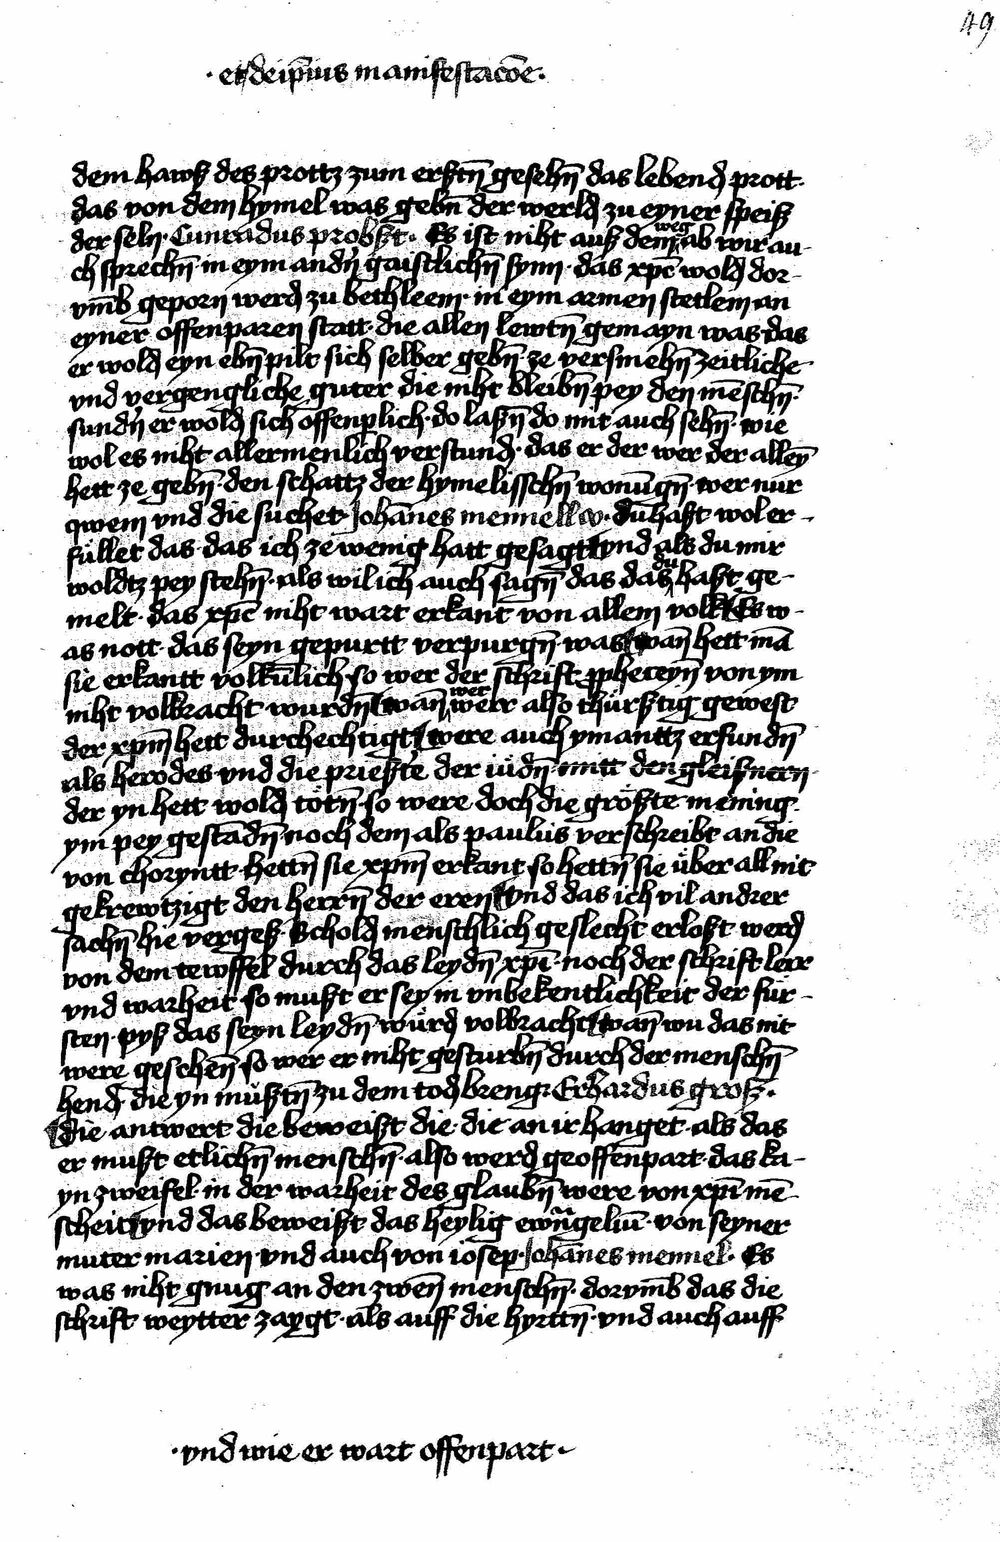 49
· et de ip̄ius manifestacōe ·
dem hawß des prottz zum erstn̄ gesehn̄ das lebend prott ·
das von dem hymel was gebn̄ der werld zu eyner speiß
der seln · Cunradus probßt · Es ist niht auß dem weg ab wir au-
ch sprechn̄ in eym andn̄ gaistlichn̄ synn · das xpc̄ wold dor-
vm̄b geporn werd zu bethleem · in eym armen stetlem an
eyner offenparen statt · die allen lewtn̄ gemayn was · das
er wold eyn ebn̄pilt sich selber gebn̄ · ze versmehn̄ zeitliche
vnd vergengliche guter die niht bleibn̄ pey den mēschn̄ ·
sundn̄ er wold sich offenplich · do laßn̄ do mit auch sehn̄ · wie
wol es niht allermenlich verstund · das er der wer der alleȳ
hett ze gebn̄ · den schattz der hymelisschn̄ wonūgn̄ · wer nur
qwem vnd die suchet · Johānes mennellw · du haßt wol er-
füllet das · das ich ze wenig hatt gesagt vnd als du mir
woldtz pey stehn̄ · als wil ich auch sagn̄ das das du haßt ge-
melt · das xpc̄ niht wart erkant von allem volk Es w-
as nott · das seyn gepurtt verpurgn̄ was wan̄ hett mā
sie erkantt volkūlich · so wer der schrift ꝓpheceyn̄ von ym
niht volbracht wurdn̄ wan̄ wer werr also thürstig gewest
der xpm̄ hett durchechtigt were auch ymanttz erfundn̄
als herodes · vnd die prießte der iüdn̄ · mitt den gleißnern ·
der yn hett wold tötn̄ · so were doch die größte mening ·
ym pey gestādn̄ noch dem als paulus verschreibt an die
von choryntt · hettn̄ sie xpm̄ erkant so hettn̄ sie über all nit
gekrewtzigt den herrn̄ der eren vnd das ich vil andrer
sachn̄ hie vergeß Schold menschlich geslecht erloßt werd
von dem tewffel durch das leydn̄ xpī · noch der schrift lerr
vnd warheit · so mußt er sey in vnbekentlichkeit der für-
sten · pyß das seyn leydn̄ würd volbracht wan̄ wu das nit
were geschen̄ · so wer er niht gesturbn̄ durch der menschn̄
hend · die yn müßtn̄ zu dem tod breng · Erhardus groß ·
die antwert die beweißt die · die an ir hanget · als das
er mußt etlichn̄ menschn̄ · also werd geoffenpart · das ka-
yn zweifel · in der warheit des glaubn̄ were von xpī mē-
scheit vnd das beweißt das heylig ewn̄geliū · von seyner
muter marien · vnd auch von iosep · Johānes mennel · Es
was niht gnug an den zwen̄ menschn̄ · dorvm̄b das die
schrift weytter zaygt · als auff die hyrttn̄ · vnd auch auff
· vnd wie er wart offenpart ·